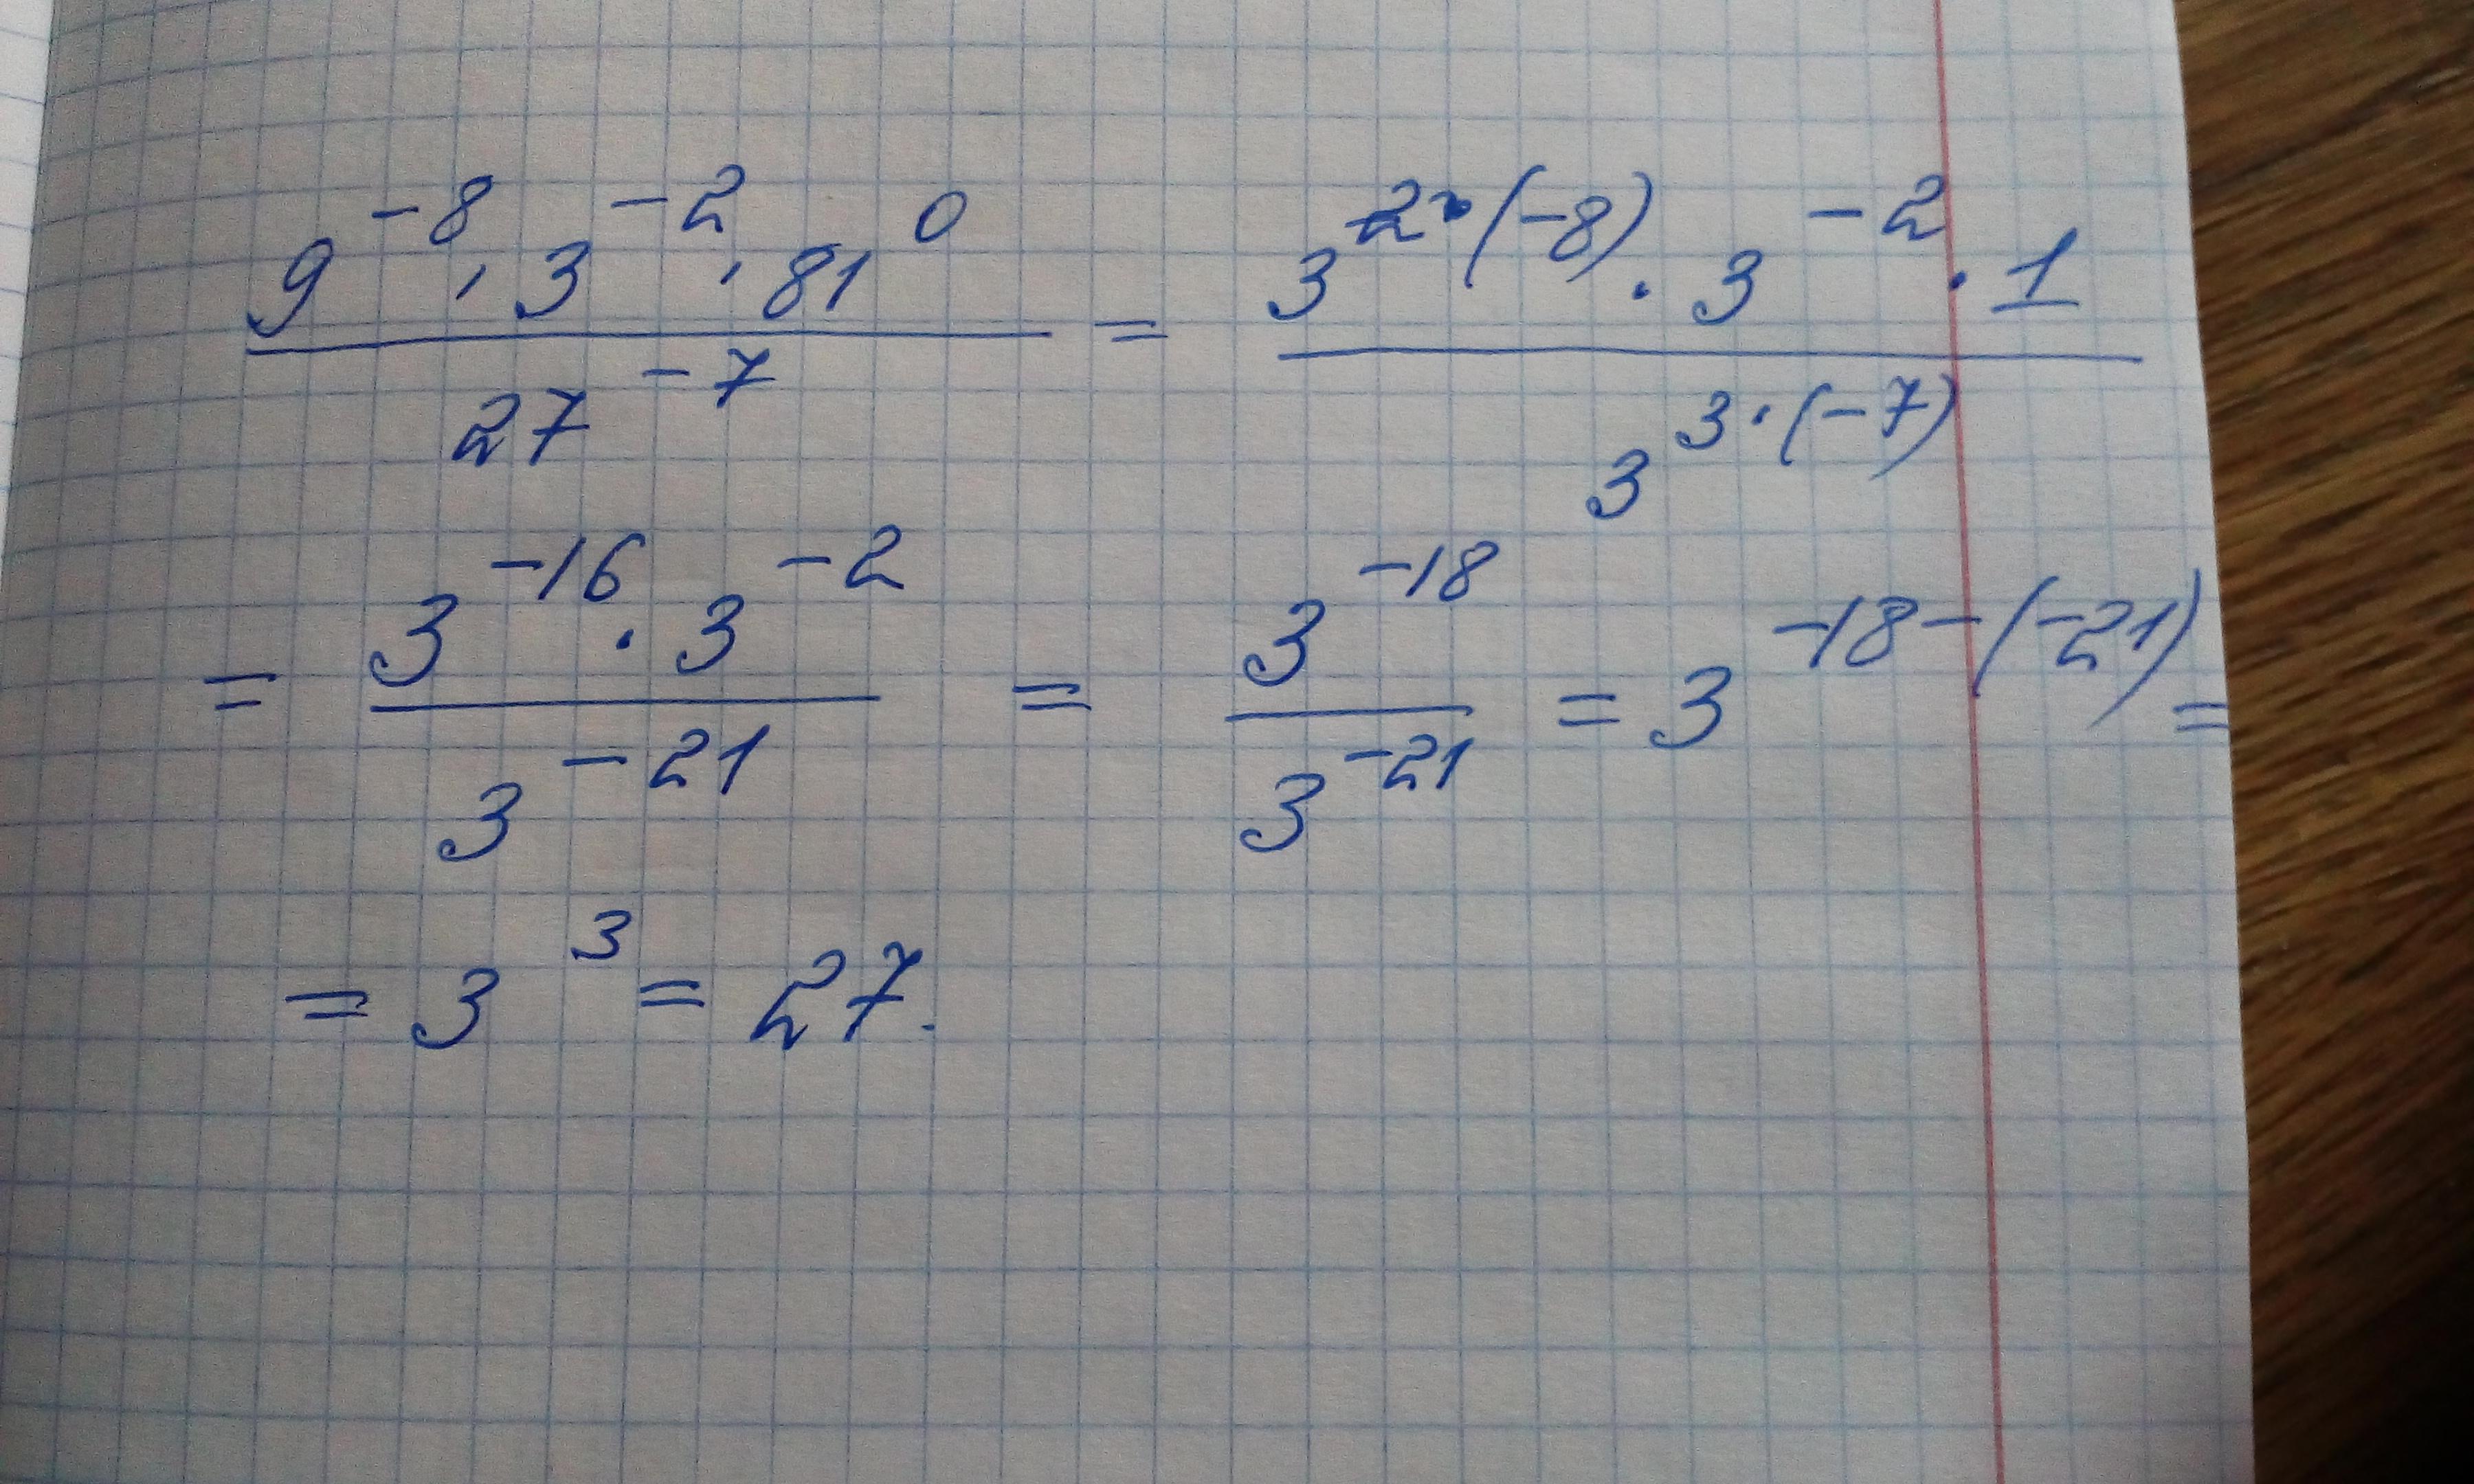 9^-8 · 3^-2 · 81^0 / 27^-7 = 3^2·(-8) · 3^-2 · 1 / 3^3·(-7)
= 3^-16 · 3^-2 / 3^-21 = 3^-18 / 3^-21 = 3^-18-(-21) =
= 3^3 = 27.